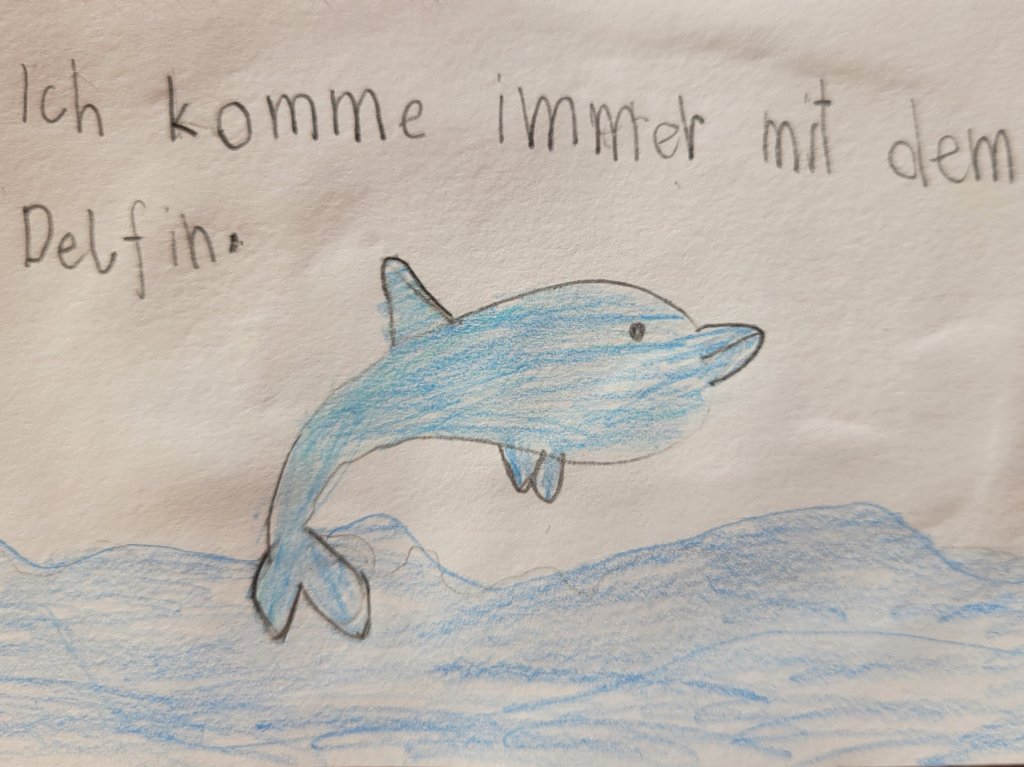 Ich komme immer mit dem
Delfin.